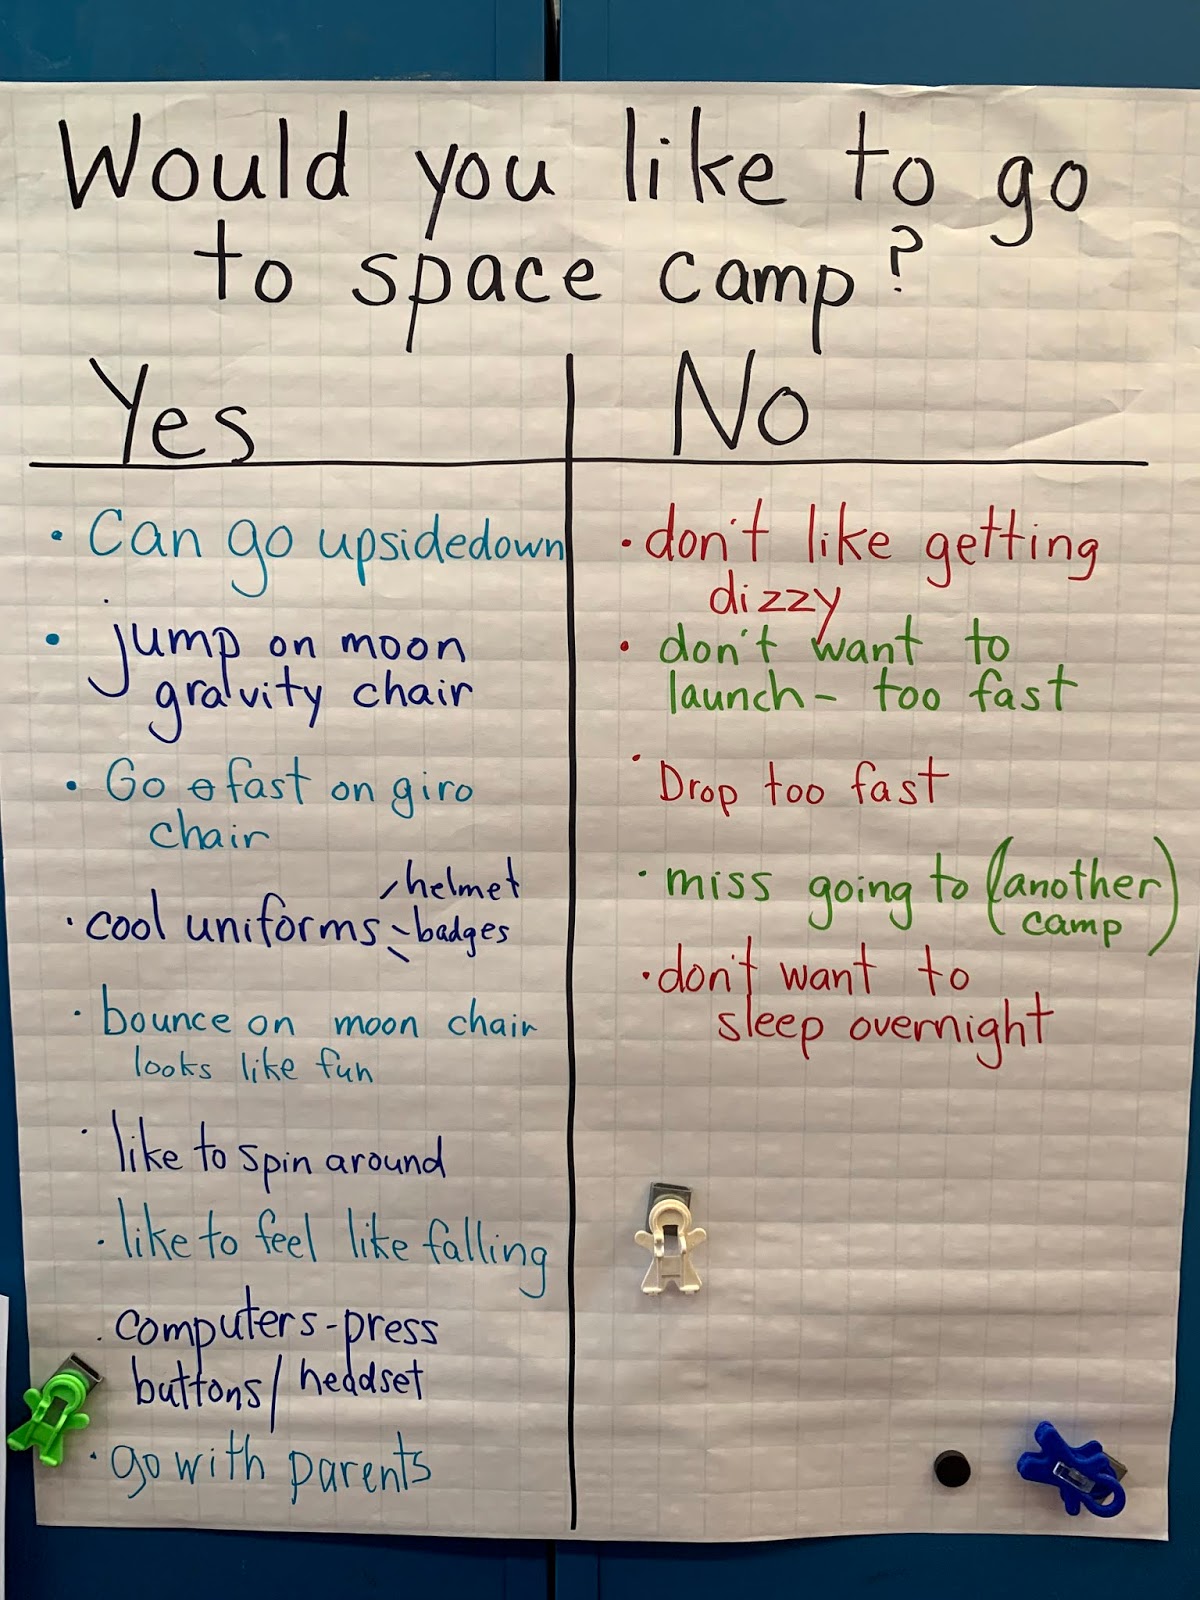 Would you like to go
to space camp?
Yes
• Can go upsidedown
• jump on moon
gravity chair
• Go fast on giro
chair
• cool uniforms - helmet
- badges
• bounce on moon chair
looks like fun
• like to spin around
• like to feel like falling
• computers - press
buttons / headset
• go with parents
No
• don't like getting
dizzy
• don't want to
launch - too fast
• Drop too fast
• miss going to (another
camp)
• don't want to
sleep overnight